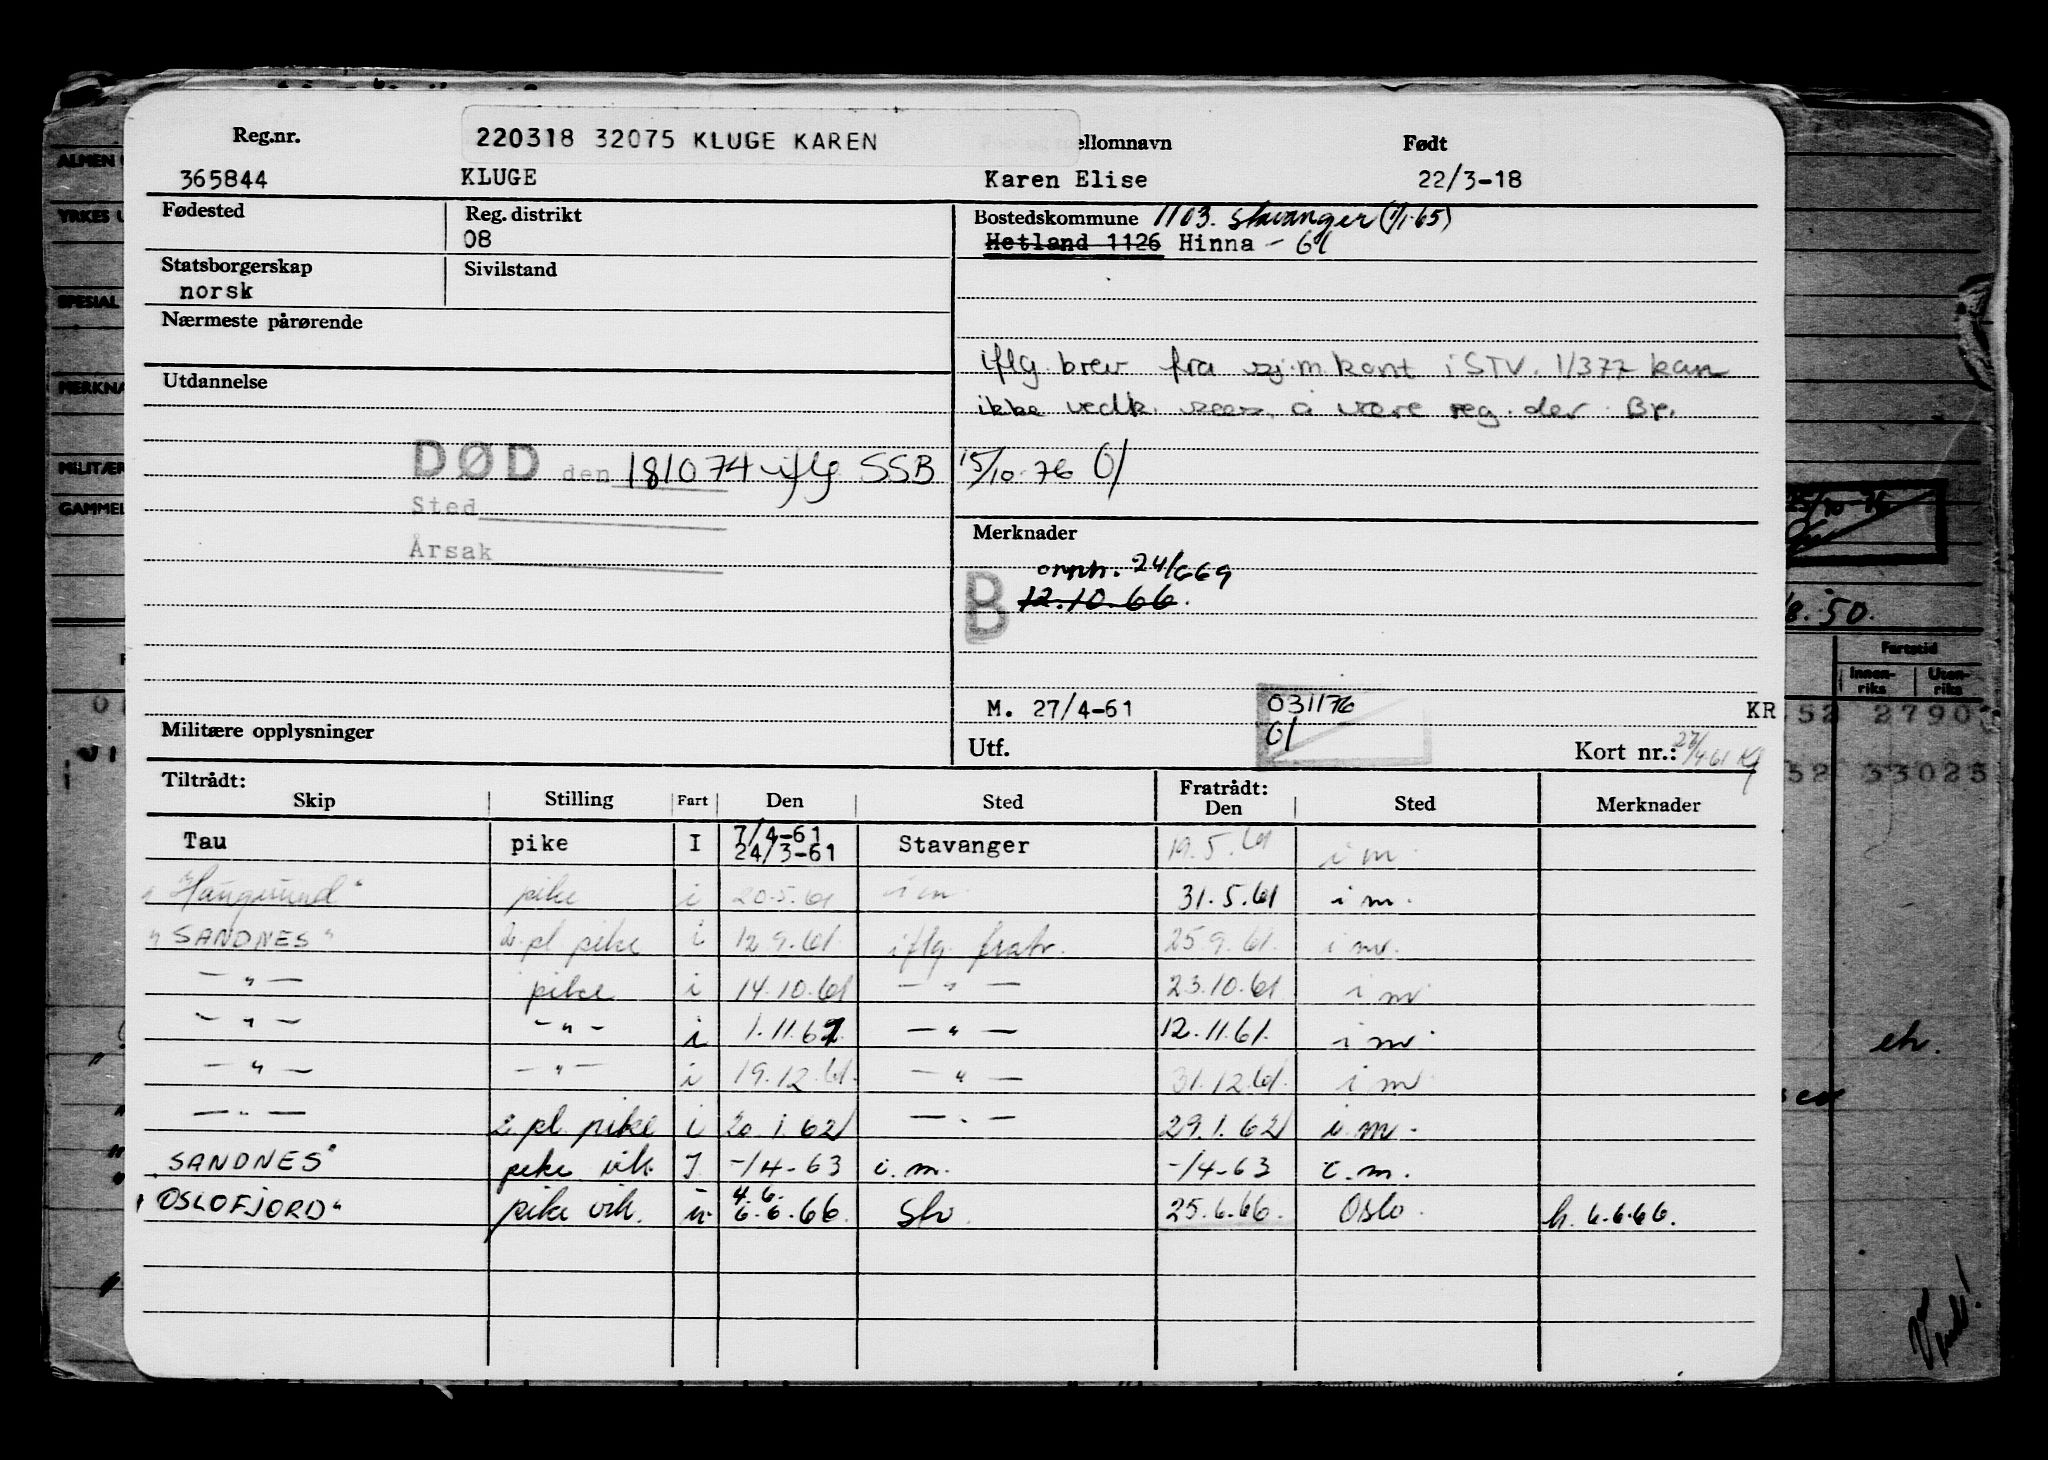 220318 32075 KLUGE KAREN
Reg.nr. ellomnavn Født
365844 KLUGE Karen Elise 22/3-18
Fødested Reg. distrikt Bostedskommune 1103. Stavanger (1/1-65)
08 Hetland 1126 Hinna - 61
Statsborgerskap Sivilstand
norsk
Nærmeste pårørende
iflg. brev fra sj.m.kont i STV. 1/377 kan
Utdannelse
ikke vedk. å være reg. der. Br.
DØD den 181074 iflg SSB 15/10-76
Sted
Årsak
Merknader
24/669
B 12.10.66.
M. 27/4-61 031176 KR
Militære opplysninger Utf. Kort nr.: 27/4 61
Tiltrådt: Fratrådt:
Skip Stilling Fart Den Sted Den Sted Merknader
Tau pike I 7/4-61 24/3-61 Stavanger 19.5.61 i m.
"Haugesund" pike i 20.5.61 i m. 31.5.61 i m.
"SANDNES" 2. pl. pike i 12.9.61. iflg. fratr. 25.9.61. i m.
— " — pike i 14.10.61 — " — 23.10.61 i m.
— " — — " — i 1.11.61. — " — 12.11.61. i m.
— " — — " — i 19.12.61. — " — 31.12.61. i m.
— " — 2. pl. pike i 20.1.62 — " — 29.1.62 i. m.
"SANDNES" pike vik. I. -/4-63 i.m. -/4-63 i.m.
"OSLOFJORD" pike vik. u. 4.6. 6.6.66. Stv. 25.6.66. Oslo. h. 6.6.66.
ALMEN
YRKES U
SPESIAL
MERKNA
MILITÆR
GAMMEL
25/10-76
/8.-50.
Fartstid
Innen-riks Uten-riks
52 2790
52 33025
eh.